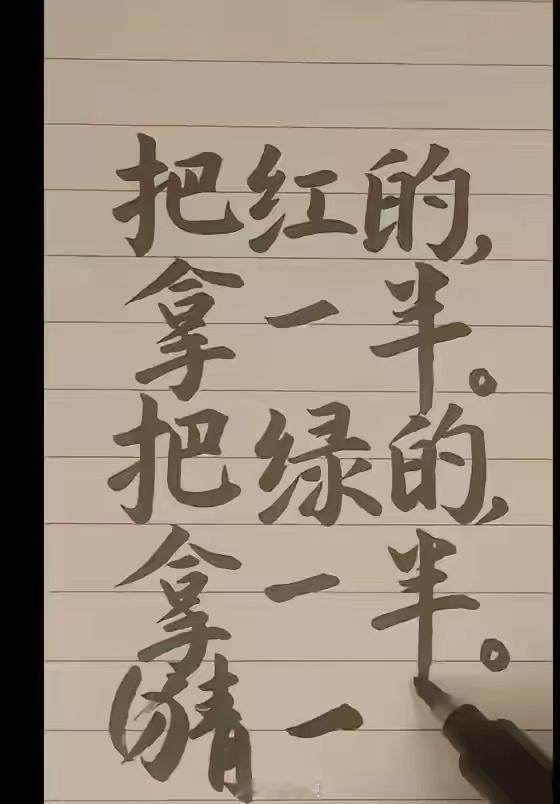 把红的,
拿一半。
把绿的,
拿一半。
猜一